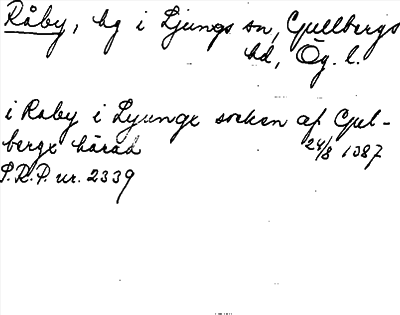 Råby, hg i Ljungs sn, Gullbergs
hd, Ög. l.
i Raby i Lyunge sokn af Gul-
bergx härad 24/8 1387
S.R.P. nr. 2339